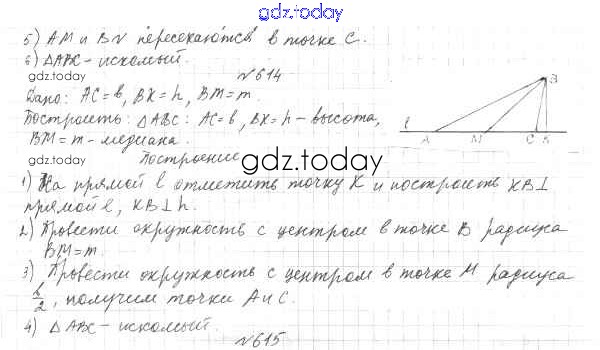 gdz.today
5) AM и BN пересекаются в точке C.
6) △ABC - искомый.
gdz.today
№614
Дано: AC=b, BK=h, BM=m.
Построить: △ABC: AC=b, BK=h - высота,
BM=m - медиана.
gdz.today
l A M C K B
Построение
gdz.today
1) На прямой l отметить точку K и построить KB⊥
прямой l, KB⊥h.
2) Провести окружность с центром в точке B радиуса
BM=m.
3) Провести окружность с центром в точке M радиуса
b/2, получим точки A и C.
4) △ABC - искомый.
№615
gdz.today